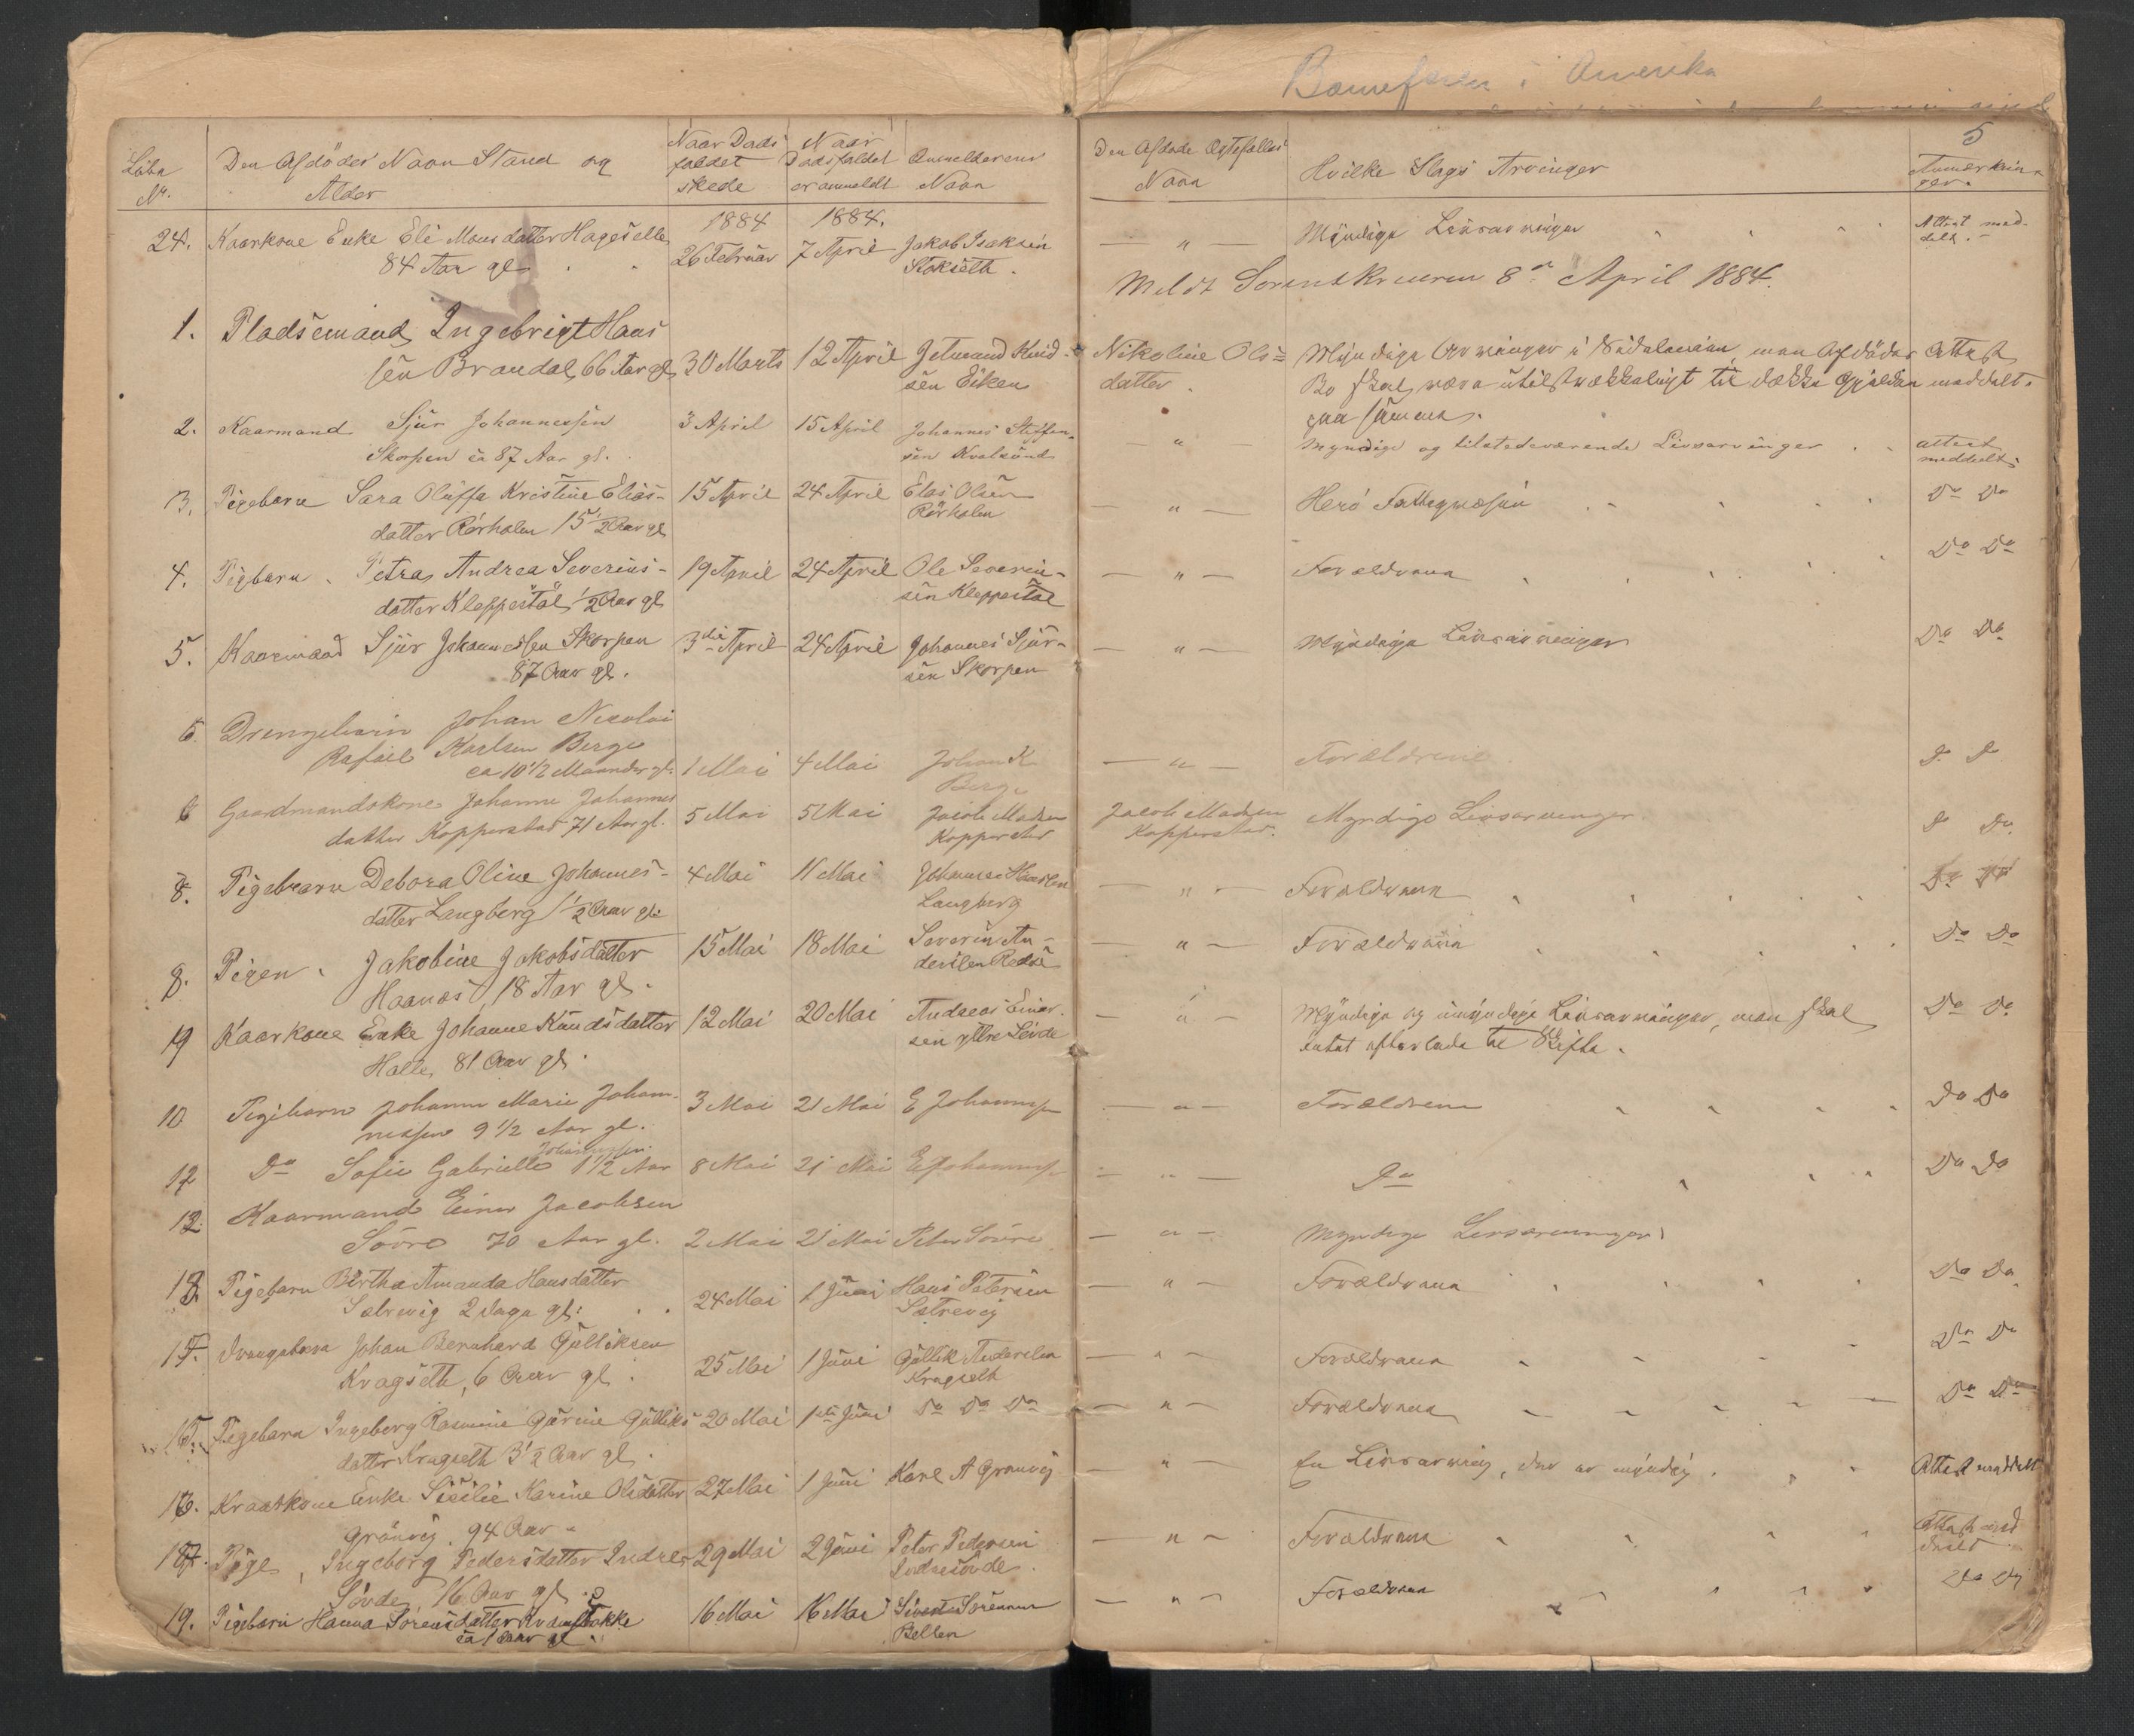 i Amerika
5
Löbe No. Den Afdödes Navn Stand og Alder Naar Døds faldet skede Naar Dødsfaldet er anmeldt Anmelderens Navn Den Afdøde Ægtefælles Navn Hvilke Slags Arvinger Anmærknin- ger.
1884 1884.
24. Kaarkone Enke Eli Monsdatter Hageselle 26 Februar 7 April Jakob Isaksen — " — Myndige Livsarvinger Attest med-
84 Aar gl Stokseth. delt.
Meldt Sorenskriveren 8de April 1884.
1. Pladsemand Ingebrigt Hans
sen Brandal, 66 Aar gl 30 Marts 12 April Jetmand Knud- Nikoline Ols= Myndige Arvinger i Sidelinien, men Afdödes Attest
sen Eiken datter. Bo skal være utilstrækkeligt til dække Gjælden meddelt.
paa samme.
2. Kaarmand Sjur Johannessen 3 April 15 April Johannes Steffen- — " — Myndige og tilstedeværende Livsarvinger attest
Skorpen ca 87 Aar gl. sen Kvalsund meddelt.
3. Pigebarn Sara Oluffa Kristine Elias- 15 April 24 April Elas Olsen — " — Herö Fattigvæsen Do Do
datter Rörholm 15 1/2 Aar gl Rörholm
4. Pigbarn Petra Andrea Severins- 19 April 24 April Ole Severin- — " — Forældrene Do Do
datter Kleppestøl 1/2 Aar gl sen Kleppestøl
5. Kaarmand Sjur Johannessen Skorpen 3die April 24 April Johannes Sjur- — " — Myndige Livsarvinger Do Do
87 Aar gl. sen Skorpen
6. Drengebarn Johan Nicolai
Rafael Karlsen Berge
ca 10 1/2 Maaneder gl. 1 Mai 4 Mai Johan K Berge — " — Forældrene Do Do
6 Gaardmandskone Johanne Johannes 5 Mai 5 Mai Jacob Madsen Jacob Madsen Myndige Livsarvinger Do Do
datter Kopperstad 71 Aar gl. Kopperstad Kopperstad.
8. Pigebarn Debora Oline Johannes- 4 Mai 11 Mai Johannes Hansen — " — Forældrene Do Do
datter Langberg 1/2 Aar gl. Langberg
8. Pigen Jakobine Jakobsdatter 15 Mai 18 Mai Severin An- — " — Forældrene Do Do
Haanæs, 18 Aar gl. dersen Rødsæ
19 Kaarkone Enke Johanne Knudsdatter 12 Mai 20 Mai Andreas Einar- — " — Myndige og umyndige Livsarvinger, men skal Do Do
Halle, 81 Aar gl. sen ytre Sövde intet efterlade til Skifte.
10 Pigebarn Johanne Marie Johan- 3 Mai 21 Mai E Johannessen — " — Forældrene Do Do
nessen 9 1/2 Aar gl.
12 Do Sofie Gabrielle Johannessen 1 1/2 Aar 8 Mai 21 Mai E Johannessen — " — Do Do Do
12. Kaarmand Einar Jacobsen
Sövre 70 Aar gl. 2 Mai 21 Mai Peter Sövre — " — Myndige Livsarvinger
13. Pigebarn Bertha Amanda Hansdatter 24 Mai 1 Juni Hans Petersen — " — Forældrene Do Do
Sætrevig 2 Dage gl. Sætrevig
14. Drengebarn Johan Bernhard Gulliksen 25 Mai 1 Juni Gullik Andersen — " — Forældrene Do Do
Kragseth, 6 Aar gl. Kragseth
15. Pigebarn Ingeberg Rasmine Gurine Gulliks 20 Mai 1ste Juni Do Do Do — " — Forældrene Do Do
datter Kragseth 3 1/2 Aar gl.
16. Kraarkone Enke Sicilie Karine Olsdatter 27 Mai 1 Juni Karl A Grønvig — " — En Livsarving, der er myndig. Attest meddelt
Grønvig 94 Aar
17. Pige, Ingeborg Pedersdatter Indre 29 Mai 2 Juni Peter Pedersen — " — Forældrene Attest med delt
Sövde, 16 Aar gl. Indresövde.
19. Pigebarn Hanna Sörensdatter Kvamsbakke 16 Mai 16 Mai Sivert Sörensen — " — Forældrene Do Do
ca 1 Aar gl. Bellen